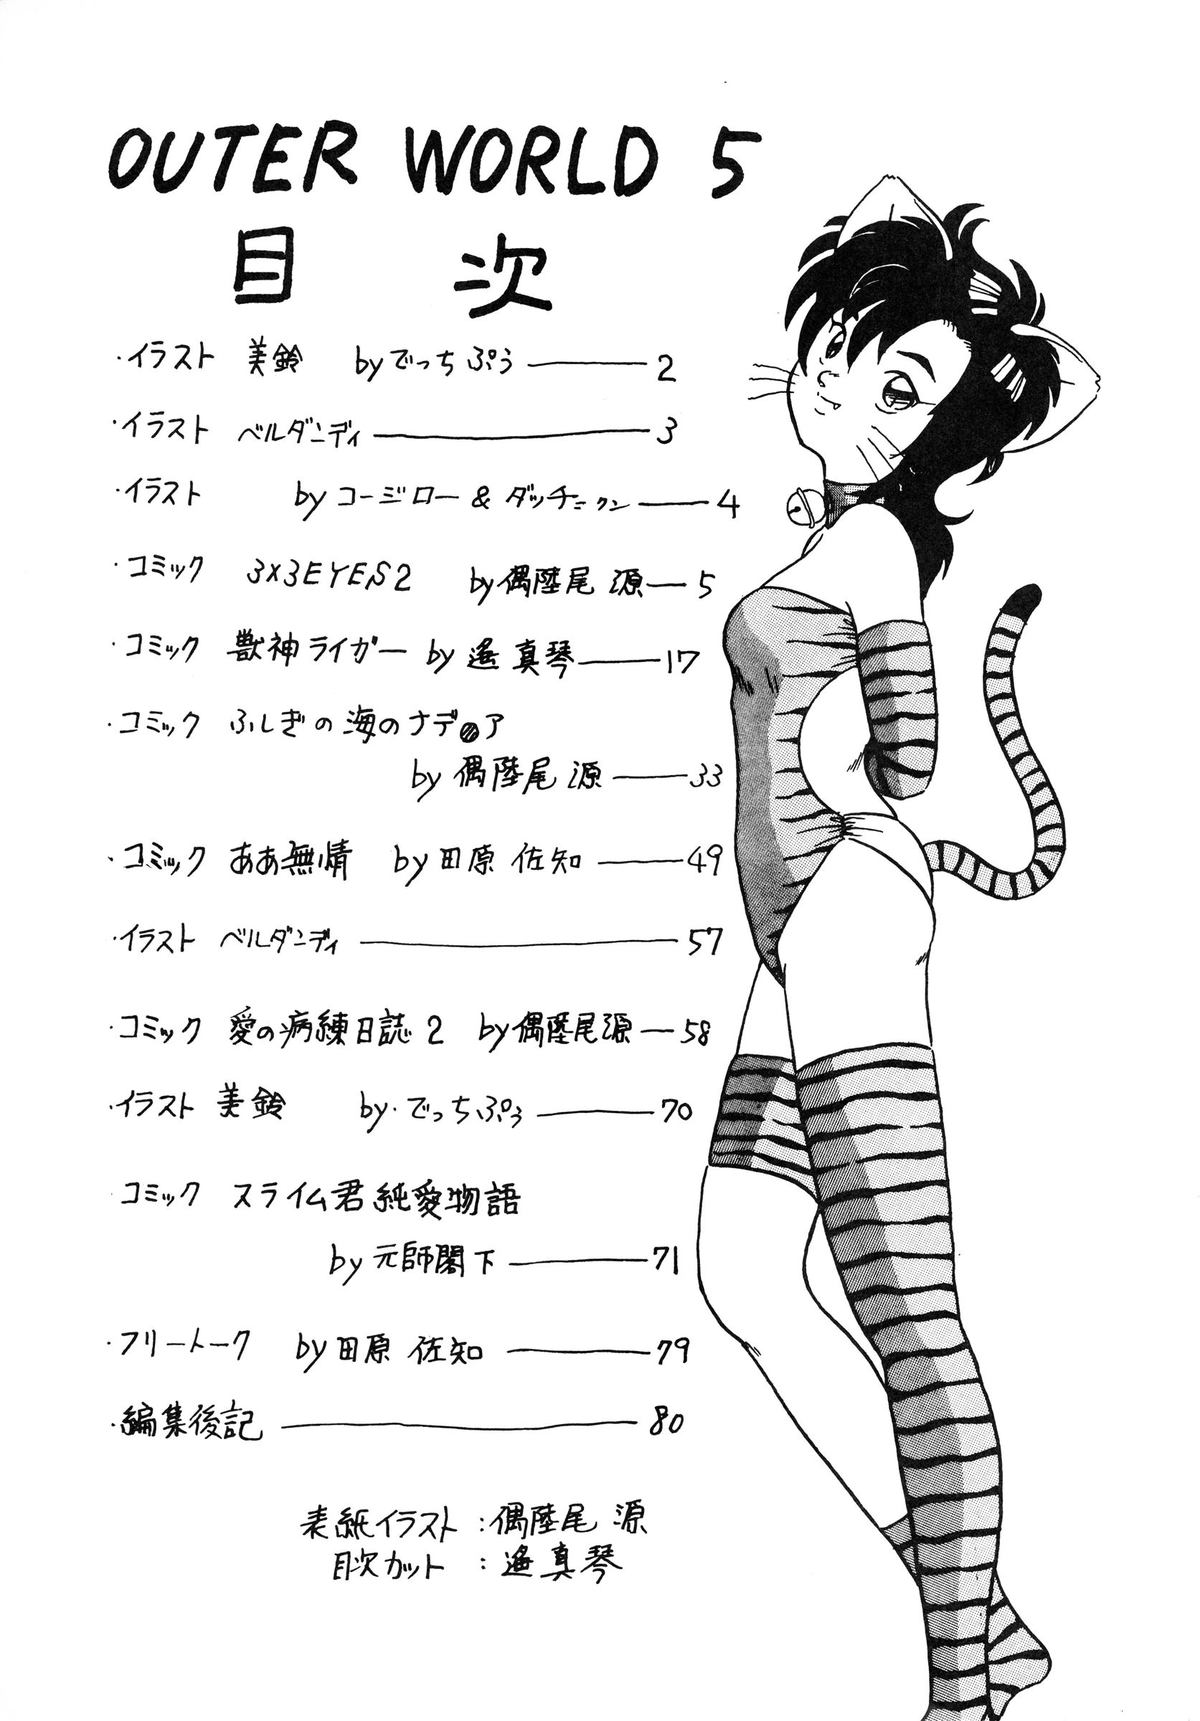 OUTER WORLD 5
目 次
・イラスト 美鈴 by でっちぷう ――― 2
・イラスト ベルダンディ ――― 3
・イラスト by コージロー & ダッチニクン ――― 4
・コミック 3×3EYES2 by 偶陸尾 源 ― 5
・コミック 獣神ライガー by 遙 真琴 ――― 17
・コミック ふしぎの海のナディア
by 偶陸尾 源 ――― 33
・コミック ああ無情 by 田原 佐知 ――― 49
・イラスト ベルダンディ ――― 57
・コミック 愛の病練日誌2 by 偶陸尾源 ― 58
・イラスト 美鈴 by・でっちぷぅ ――― 70
コミック スライム君純愛物語
by 元師閣下 ――― 71
・フリートーク by 田原 佐知 ――― 79
・編集後記 ――― 80
表紙イラスト : 偶陸尾 源
目次カット : 遙 真琴